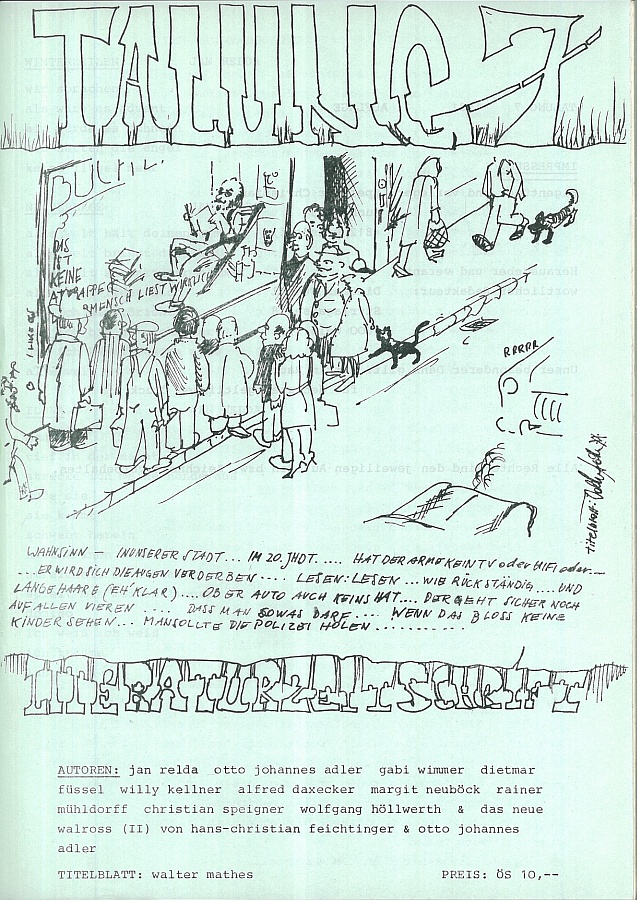 TALUNG 7
DAS
IST
KEINE
ATTRAPPE
MENSCH LIEST WIRKLICH
RRRRR
WAHNSINN – IN UNSERER STADT... IM 20. JHDT..... HAT DER ARME KEIN TV oder HIFI oder...
....ER WIRD SICH DIE AUGEN VERDERBEN.... LESEN: LESEN ... WIE RÜCKSTÄNDIG .... UND
LANGE HAARE (EH' KLAR).... OB ER AUTO AUCH KEINS HAT.... DER GEHT SICHER NOCH
AUF ALLEN VIEREN .... DASS MAN SOWAS DARF.... WENN DAS BLOSS KEINE
KINDER SEHEN... MAN SOLLTE DIE POLIZEI HOLEN ...........
LITERATURZEITSCHRIFT
AUTOREN: jan relda otto johannes adler gabi wimmer dietmar
füssel willy kellner alfred daxecker margit neuböck rainer
mühldorff christian speigner wolfgang höllwerth & das neue
walross (II) von hans-christian feichtinger & otto johannes
adler
TITELBLATT: walter mathes PREIS: ÖS 10,--